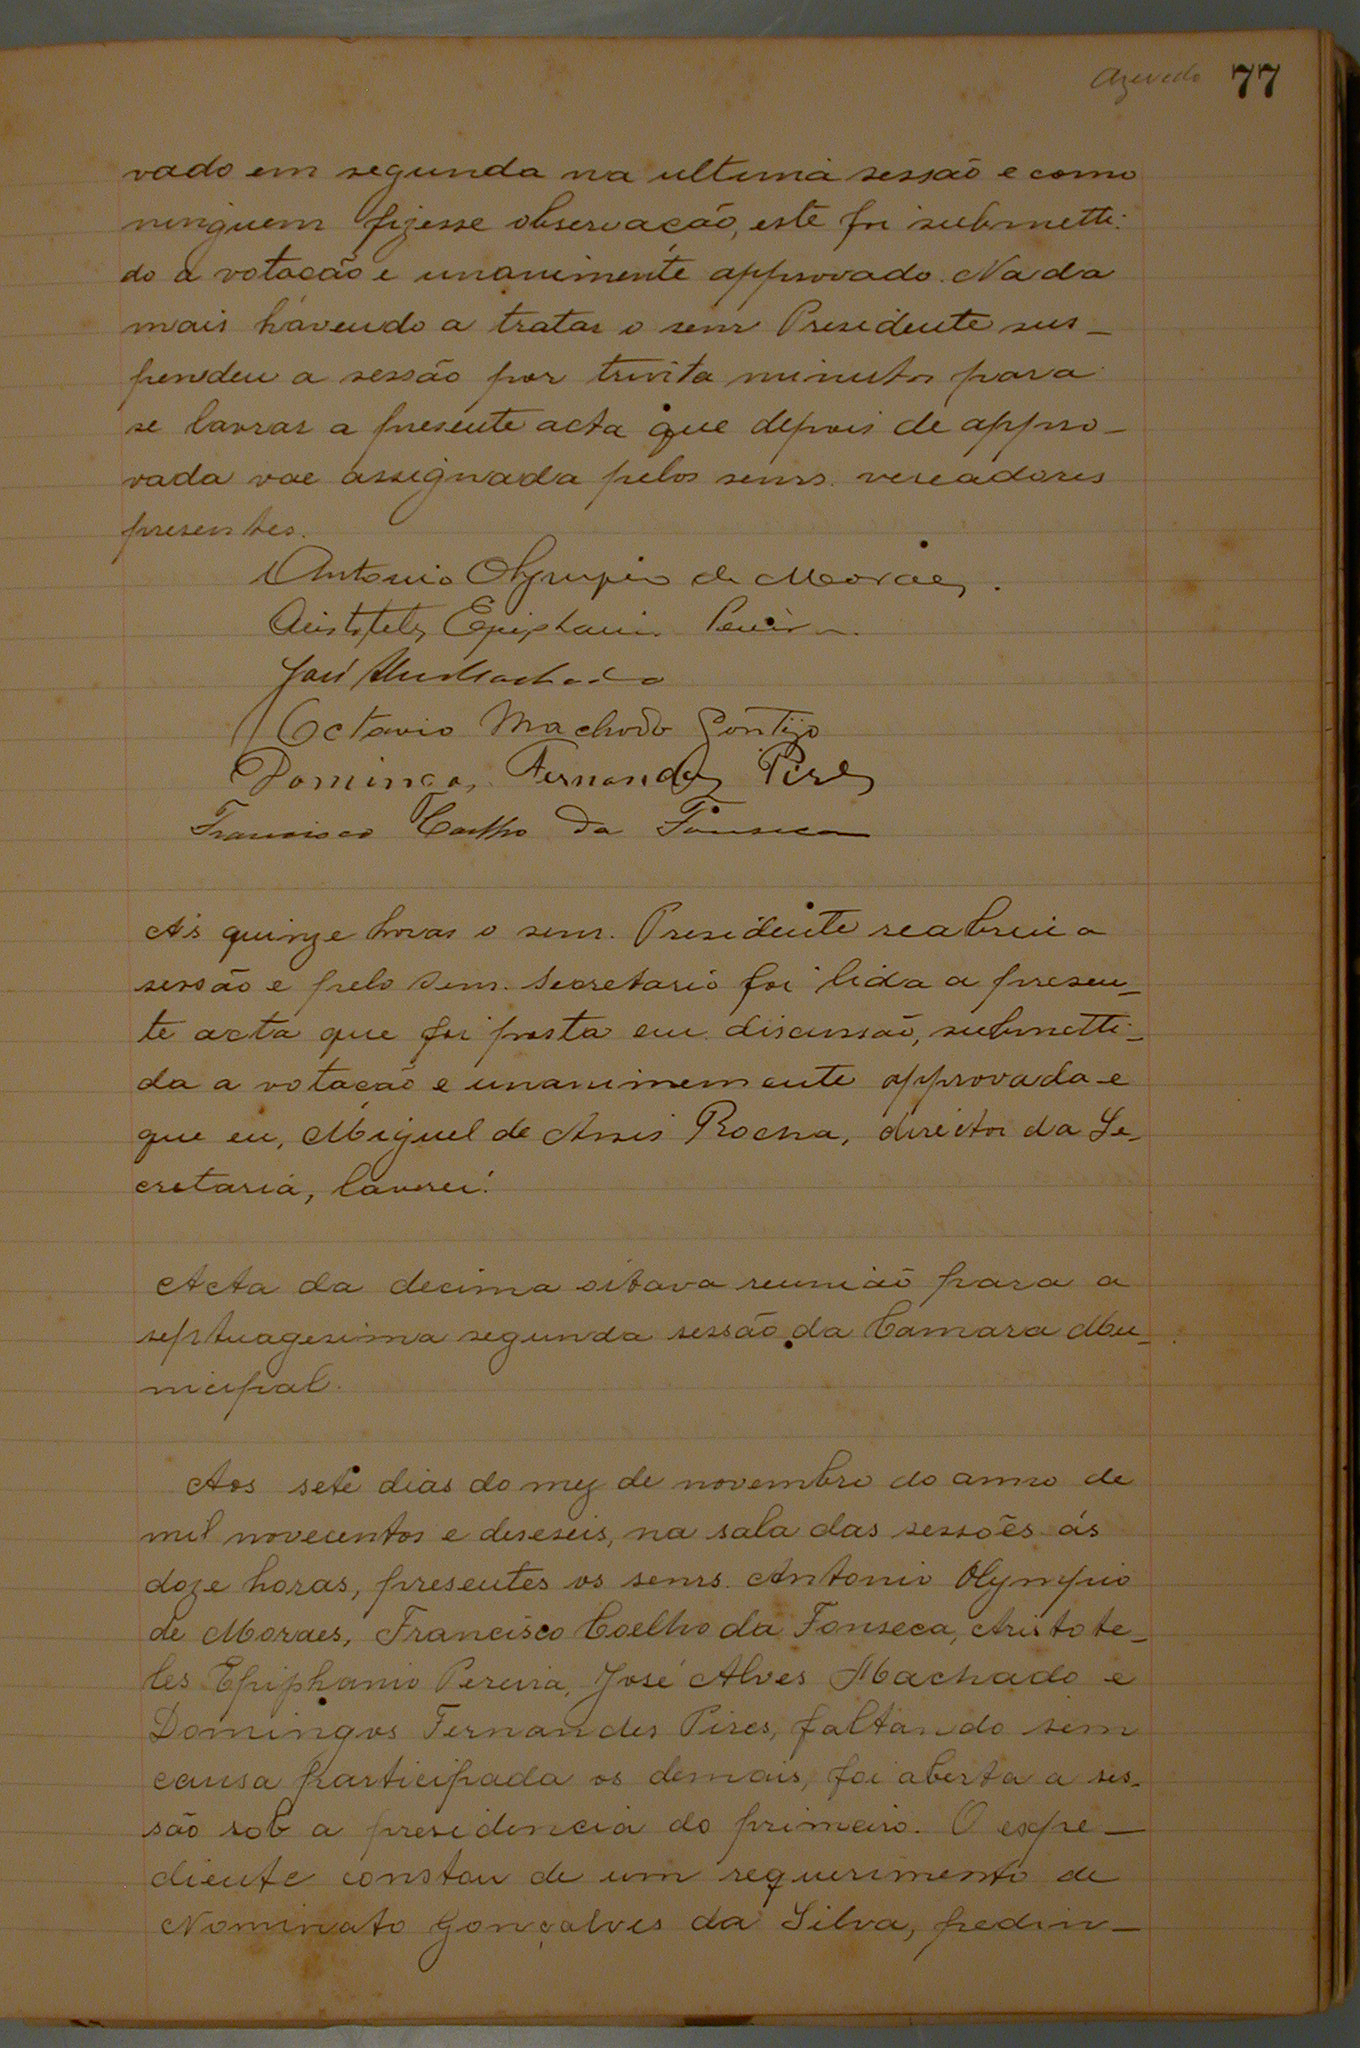 Azevedo 77
vado em segunda na ultima sessão e como
ninguem fizesse observação, este foi submetti-
do a votação e unanimente approvado. Nada
mais havendo a tratar o senr Presidente sus-
pendeu a sessão por trinta minutos para
se lavrar a presente acta que depois de appro-
vada vae assignada pelos senrs. vereadores
presentes.
Antonio Olympio de Moraes.
Aristoteles Epiphanio Pereira
José Alves Machado
Octavio Machado Gontijo
Domingos Fernandes Pires
Francisco Coelho da Fonseca
Ás quinze horas o senr. Presidente reabriu a
sessão e pelo senr. Secretario foi lida a presen-
te acta que foi posta em discussão, submetti-
da a votação e unanimemente approvada e
que eu, Miguel de Assis Rocha, director da Se-
cretaria, lavrei.
Acta da decima oitava reunião para a
septuagesima segunda sessão da Camara Mu-
nicipal.
Aos sete dias do mez de novembro do anno de
mil novecentos e deseseis, na sala das sessões ás
doze horas, presentes os senrs. Antonio Olympio
de Moraes, Francisco Coelho da Fonseca, Aristote-
les Epiphanio Pereira, José Alves Machado e
Domingos Fernandes Pires, faltando sem
causa participada os demais, foi aberta a ses-
são sob a presidencia do primeiro. O expe-
diente constou de um requerimento de
Nominato Gonçalves da Silva, pedin-